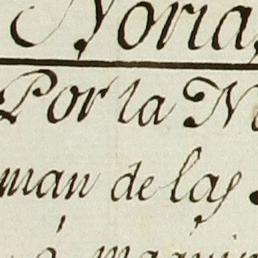 Noria,
Por la N
man de las
a maquin